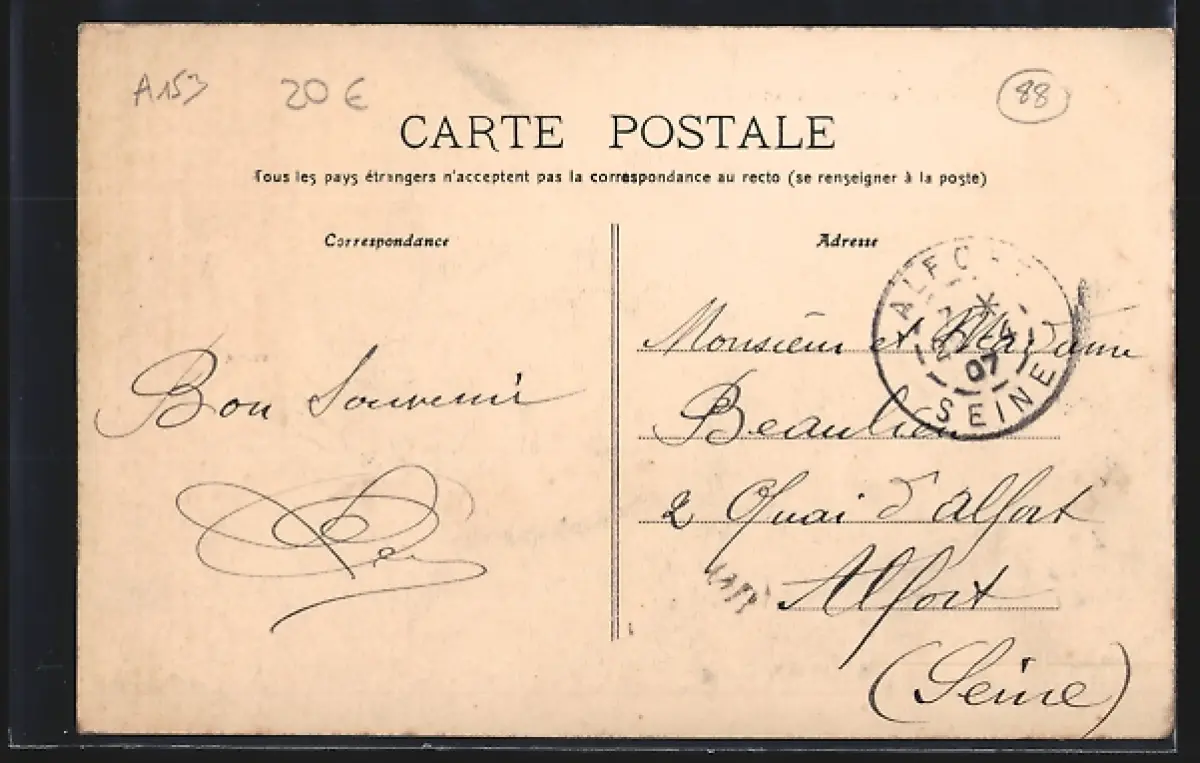 A153 20 € 88
CARTE POSTALE
Tous les pays étrangers n'acceptent pas la correspondance au recto (se renseigner à la poste)
Correspondance
Bon Souvenir
Adresse
ALFO
07
SEINE
Monsieur et Madame
Beaulieu
2 Quai d'Alfort
Alfort
(Seine)